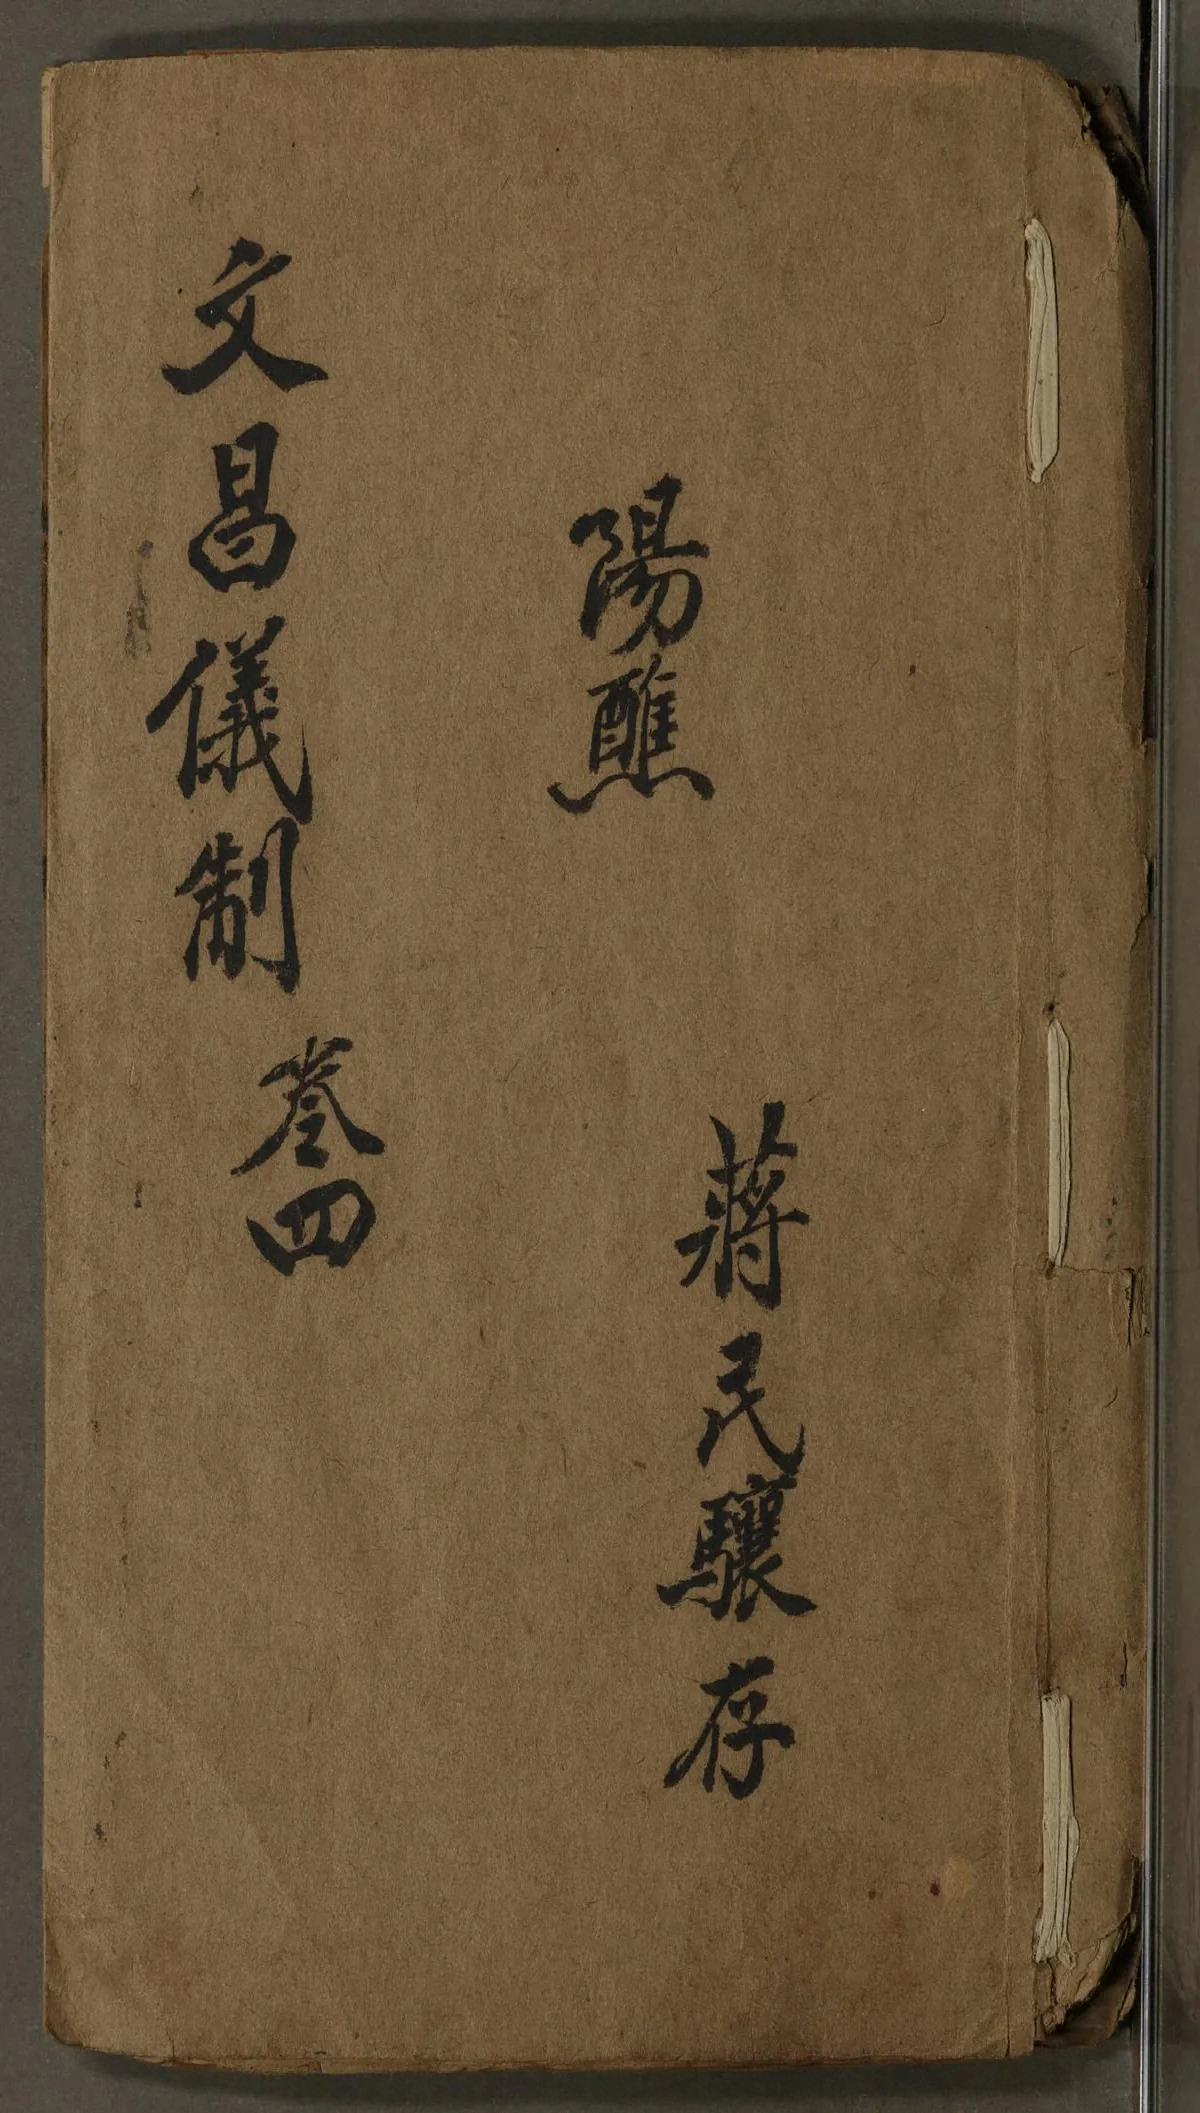 蔣民驤存
陽醮
文昌儀制 卷四